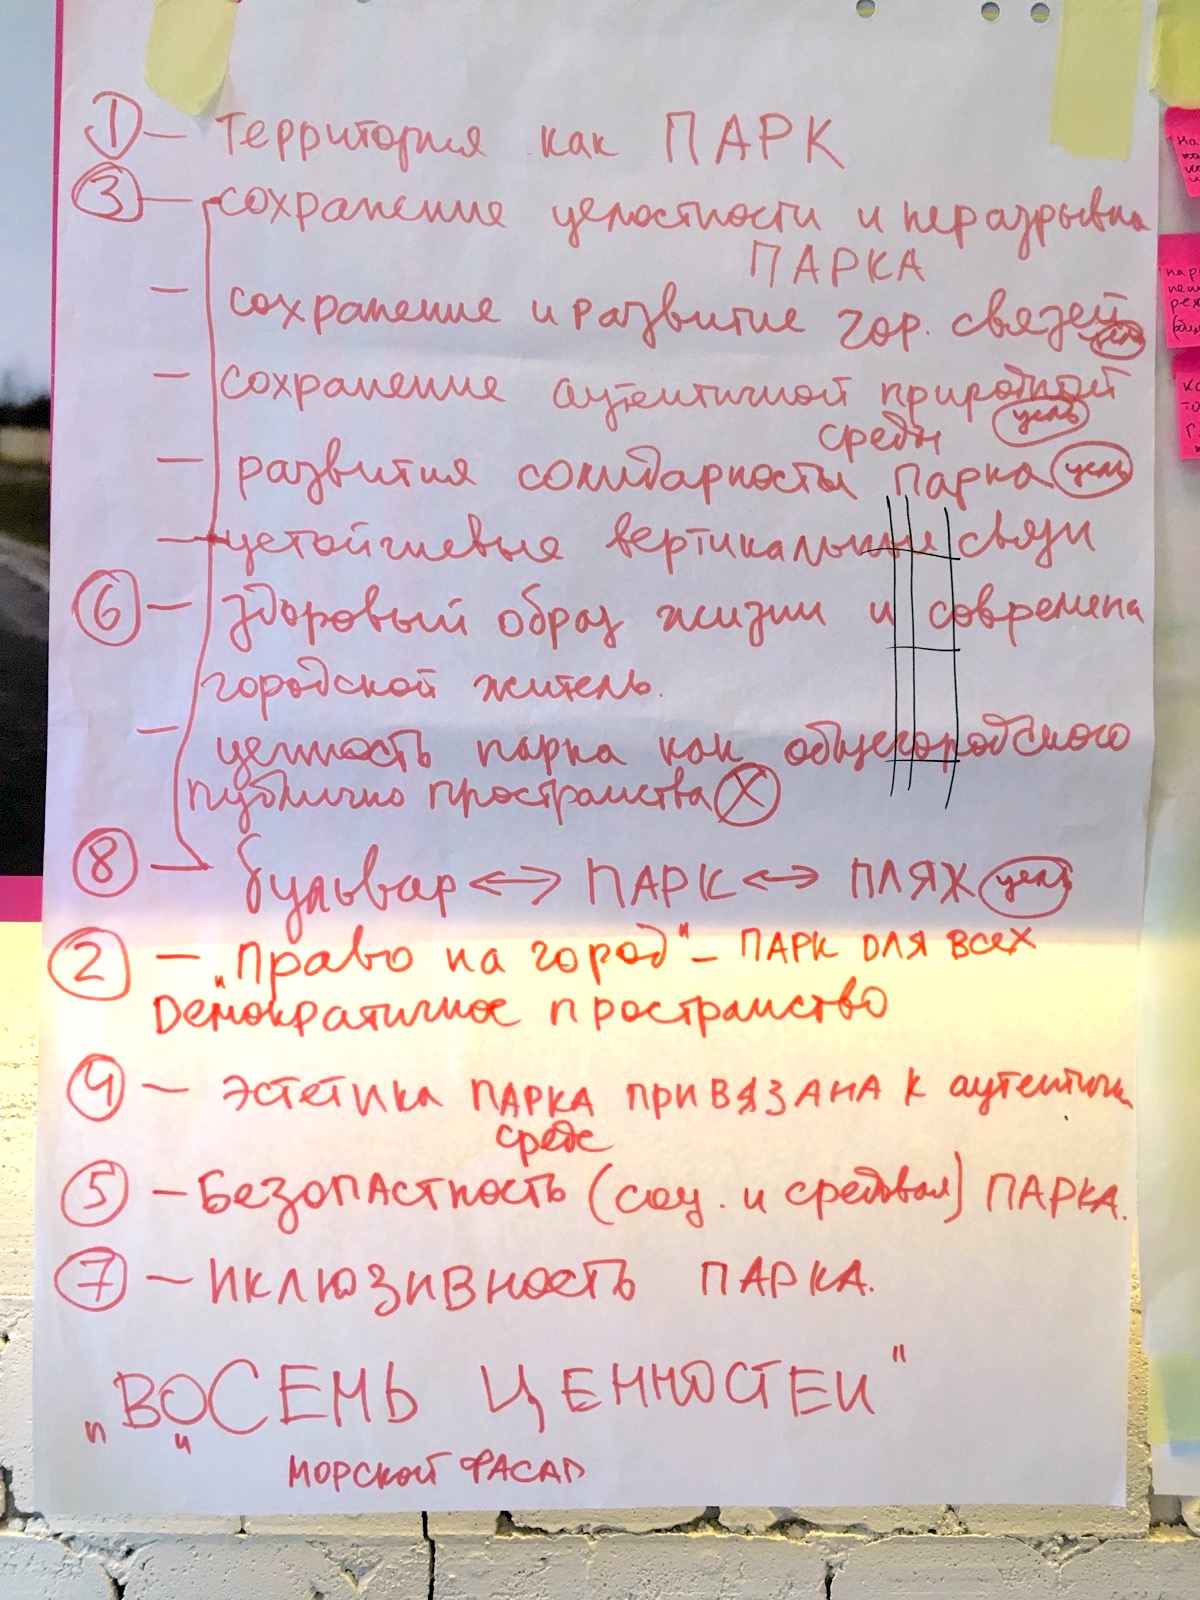 1 — Территория как ПАРК
3 — сохранение целостности и неразрывна
ПАРКА
— сохранение и развитие гор. связей цель
— сохранение аутентичной природной
среды цель
— развития солидарность парка цель
— устойчивые вертикальные связи
6 — здоровый образ жизни и современа
городской житель.
— ценность парка как общегородского
публично пространства X
8 — бульвар <—> ПАРК <—> ПЛЯЖ цель
2 — „Право на город" – ПАРК ДЛЯ ВСЕХ
Демократичное пространство
4 — Эстетика ПАРКА ПРИВЯЗАНА К аутентичн
среде
5 — БЕЗОПАСТНОСТЬ (соц. и средовая) ПАРКА.
7 — ИКЛЮЗИВНОСТЬ ПАРКА.
„ВОСЕМЬ ЦЕННОСТЕЙ"
МОРСКОЙ ФАСАД